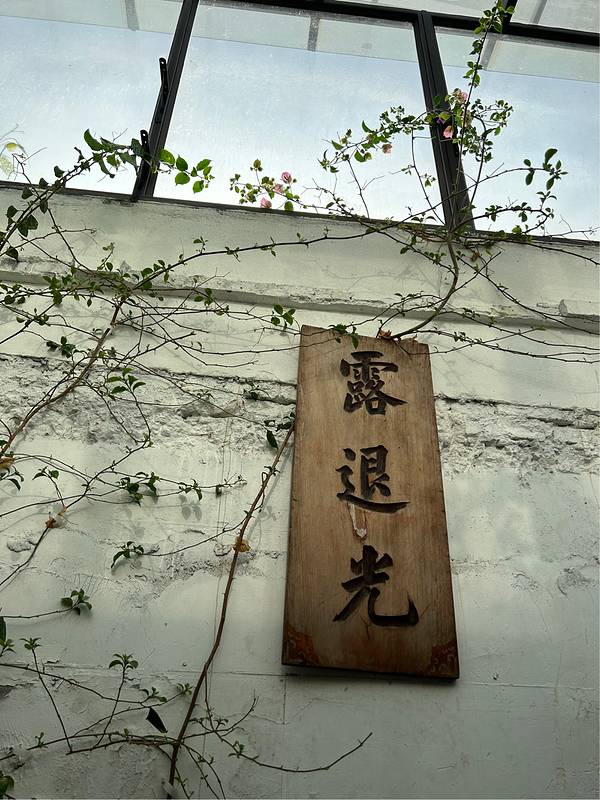 露退光